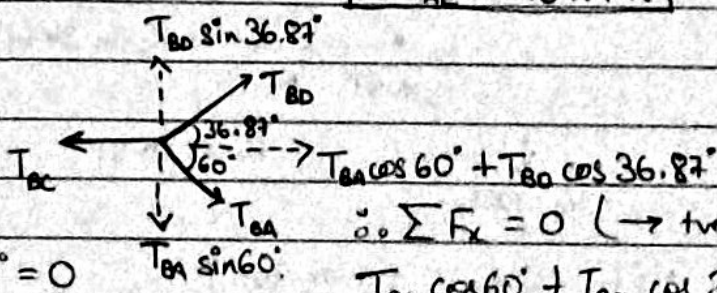 T_BD sin 36.87°
T_BD
36.87°
60°
T_BC
T_BA cos 60° + T_BD cos 36.87°
T_BA
∴ Σ F_x = 0 (→ +ve
° = 0
T_BA sin 60°.
cos 60° +